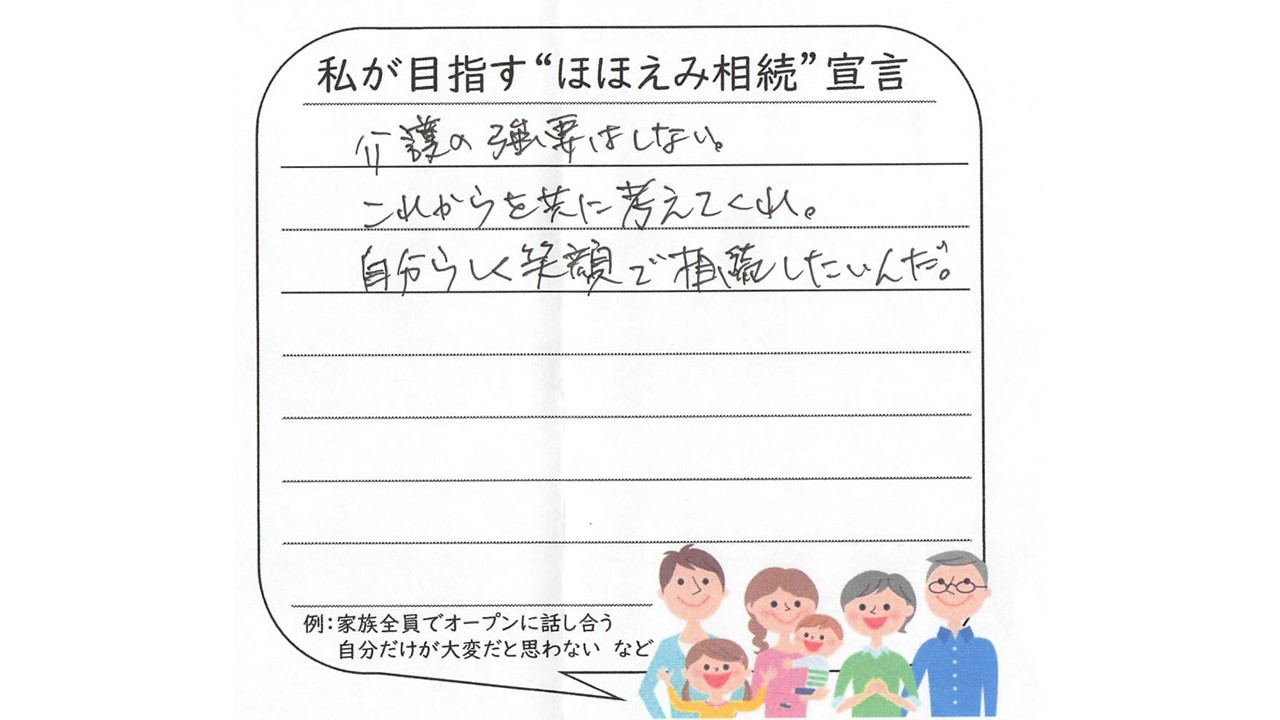 私が目指す“ほほえみ相続”宣言
介護の強要はしない。
これからを共に考えてくれ。
自分らしく笑顔で相続したいんだ。
例：家族全員でオープンに話し合う
自分だけが大変だと思わない など